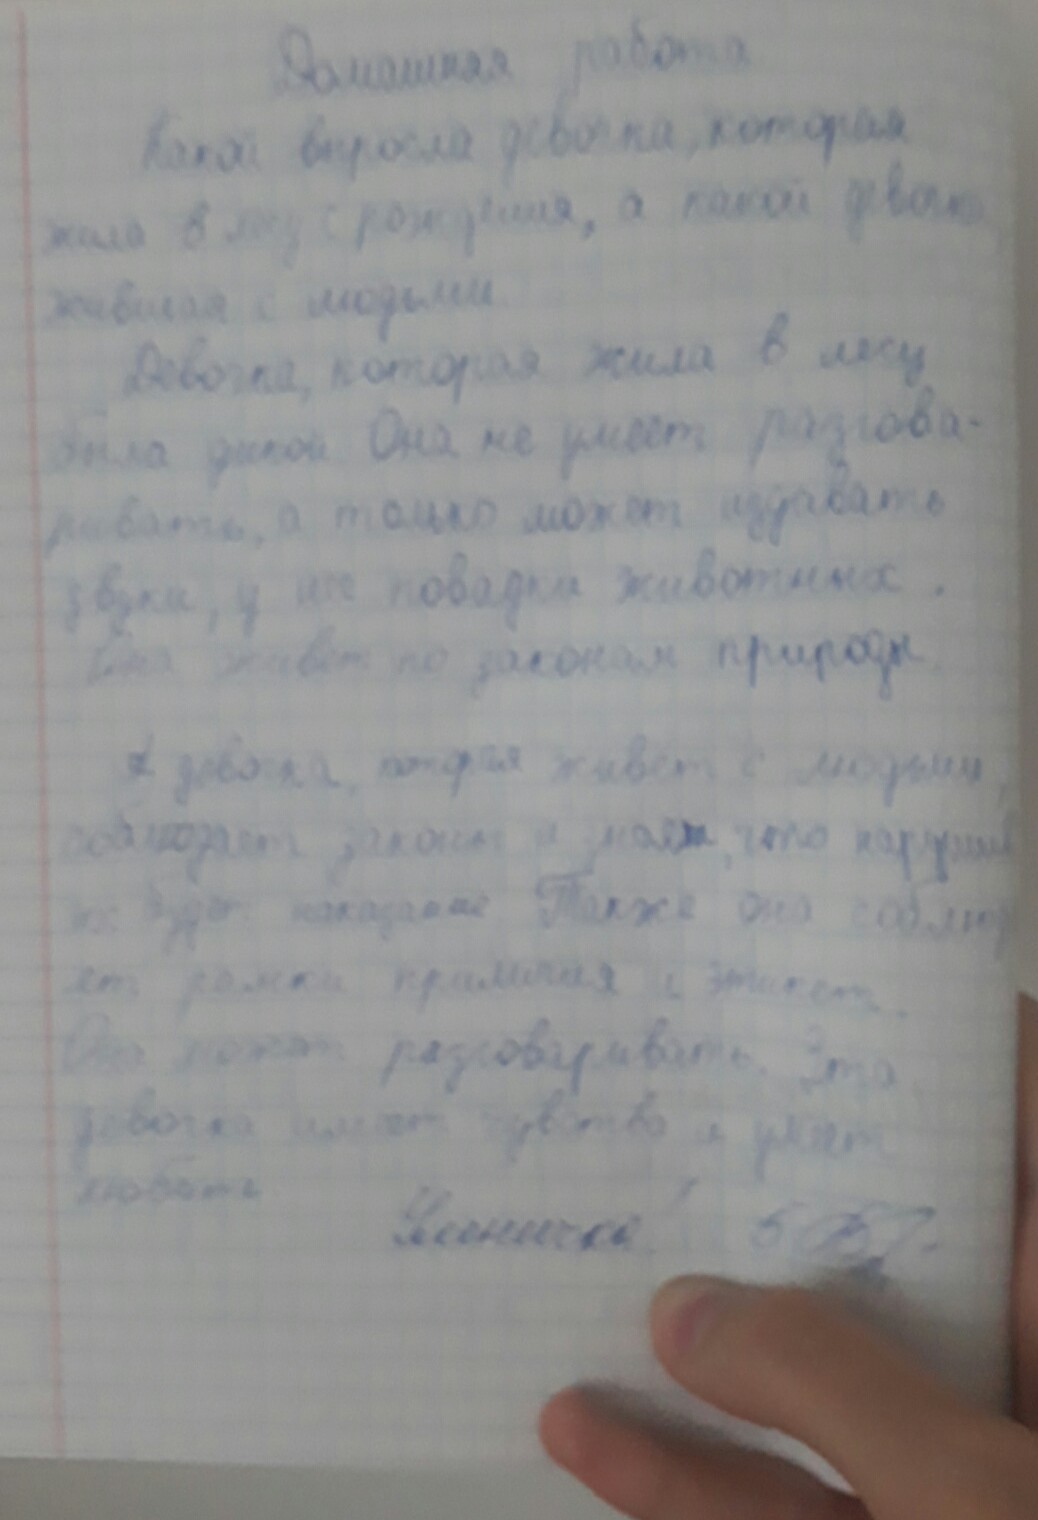 Домашняя работа
Какой выросла девочка, которая
жила в лесу с рождения, а какой девочка
жившая с людьми
Девочка, которая жила в лесу
была дикой Она не умеет разгова-
ривать, а только может издавать
звуки, у неё повадки животных.
Она живет по законам природы.
А девочка, которая живет с людьми,
соблюдает законы и знает, что нарушив
их будет наказание Также она соблюд
ет рамки приличия и этикет.
Она может разговаривать. Эта
девочка имеет чувства и умеет
любить
Умничка! 5